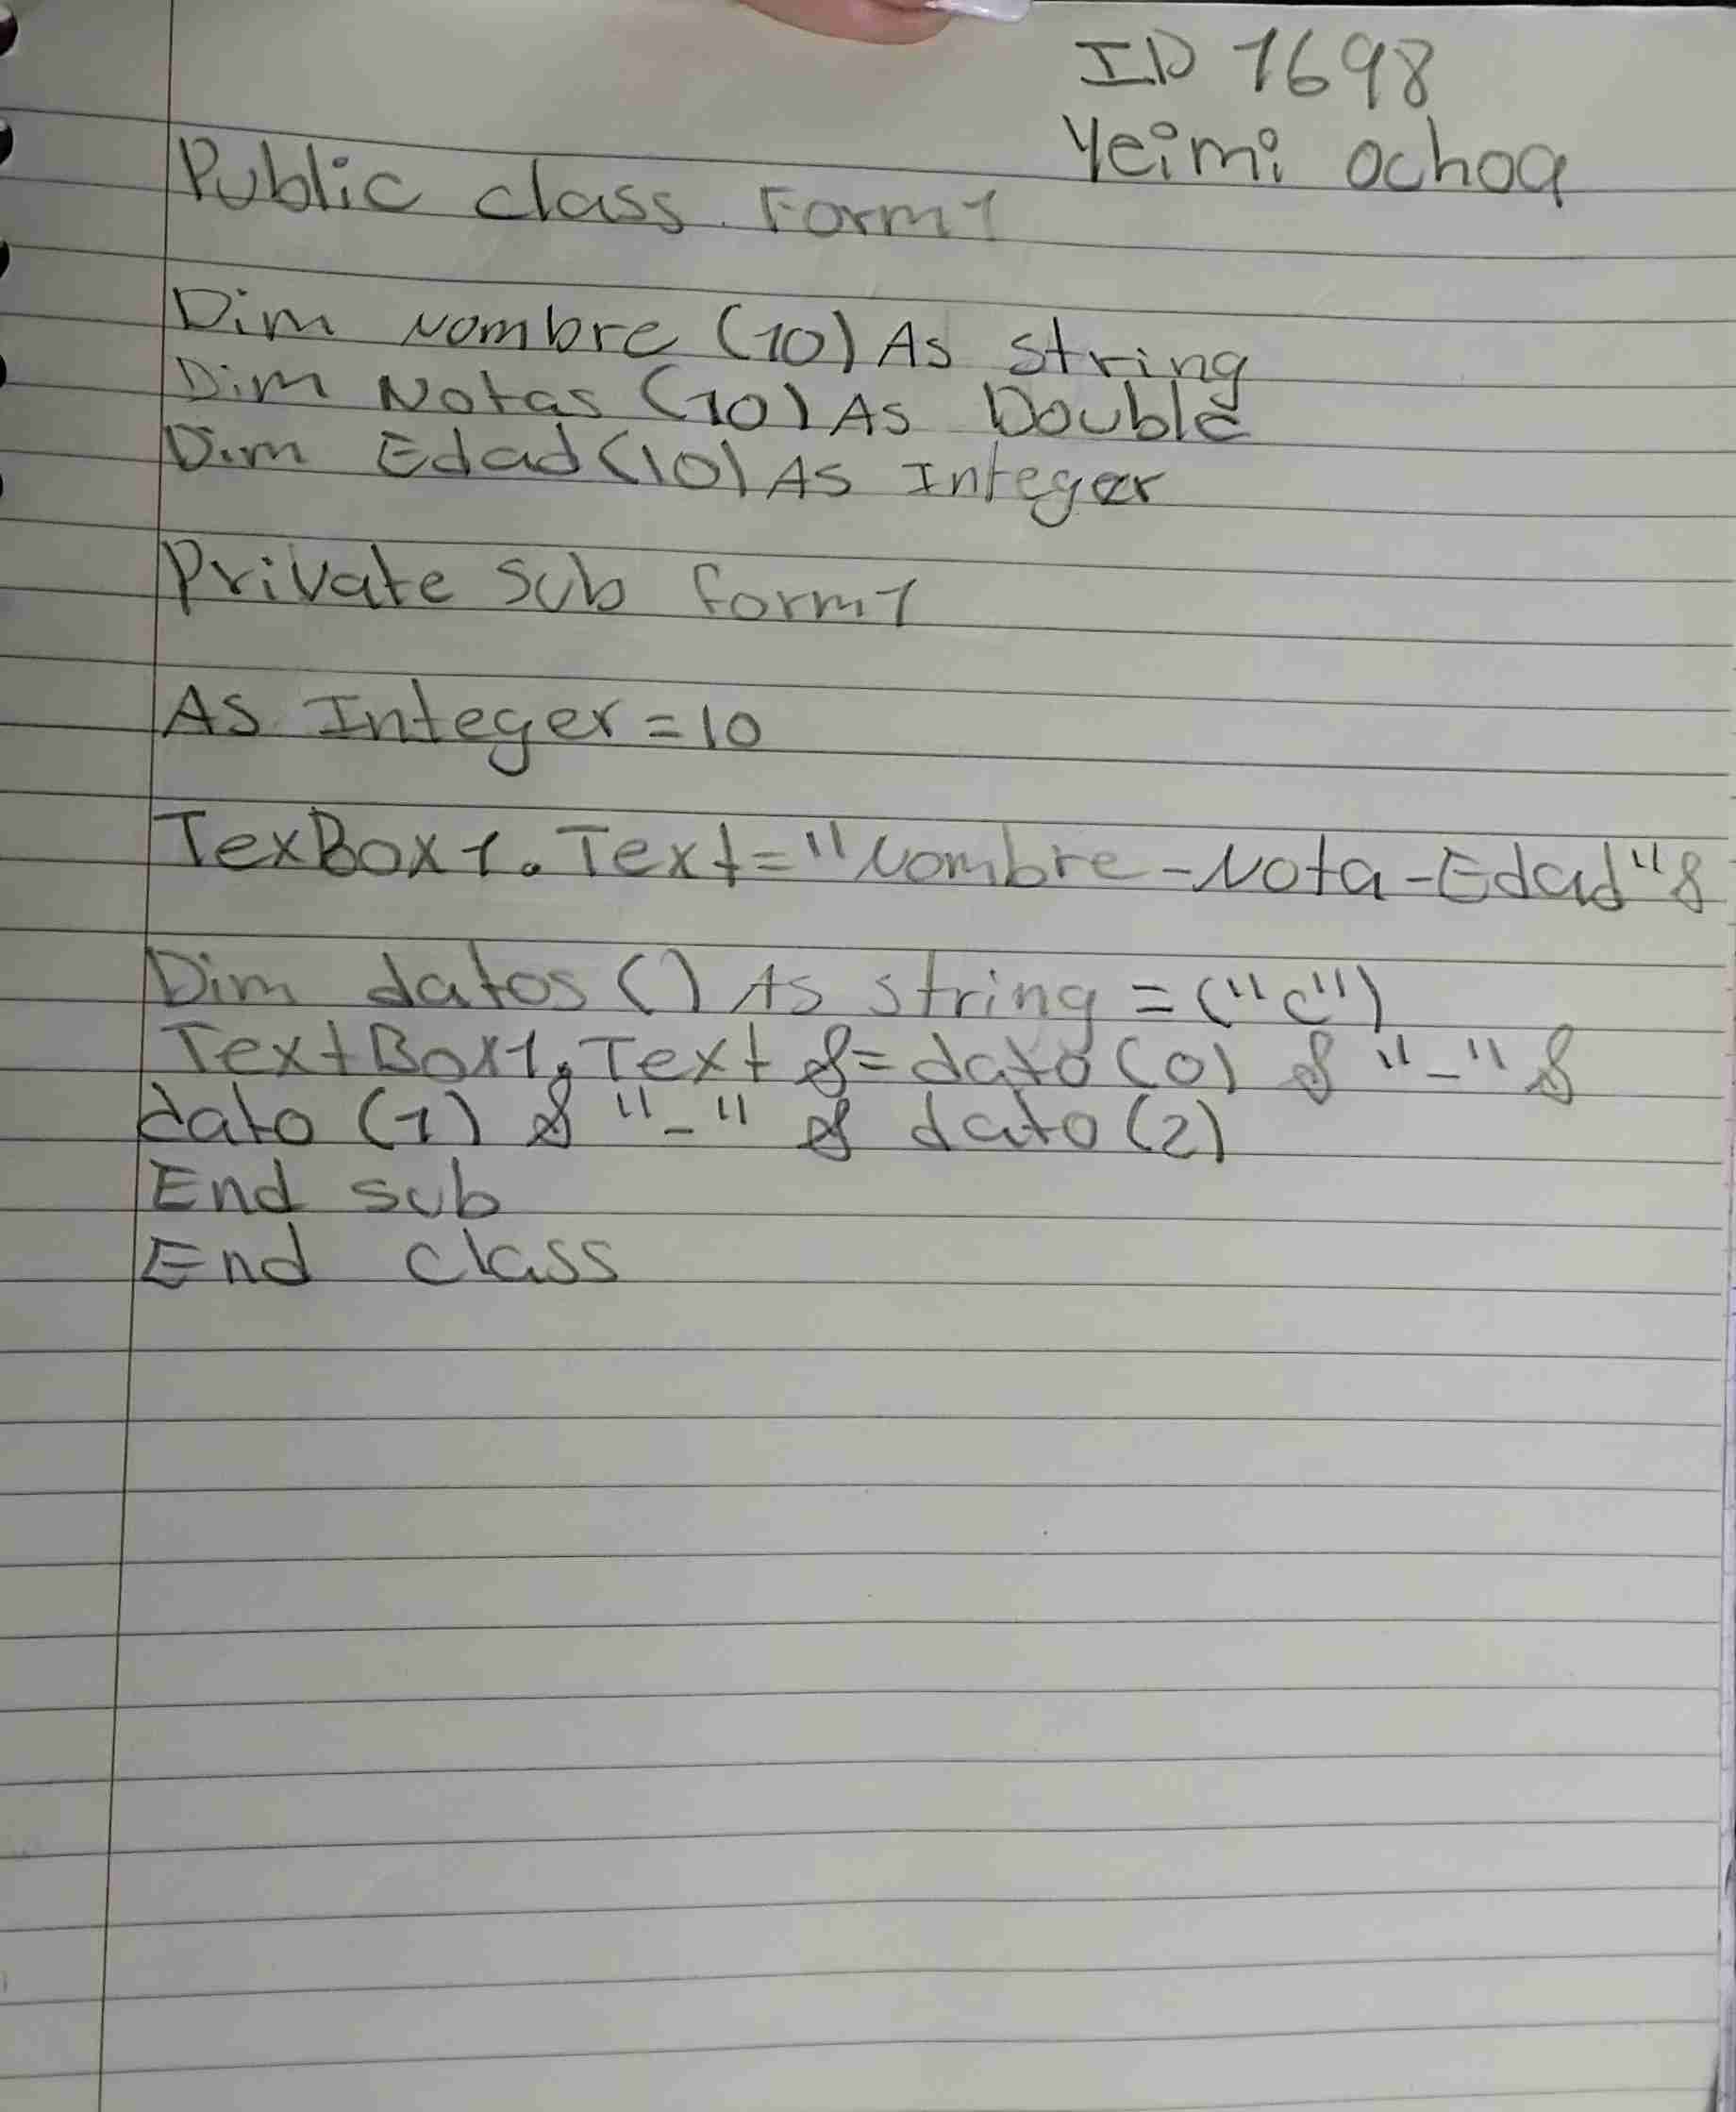 ID 1698
Yeimi ochoa
Public class Form1
Dim Nombre (10) As string
Dim Notas (10) As Double
Dim Edad (10) As Integer
Private Sub form1
As Integer = 10
TexBox1. Text = "Nombre - Nota - Edad" &
Dim datos () As string = ("c")
TextBox1. Text &= dato (0) & "-" &
dato (1) & "-" & dato (2)
End sub
End class